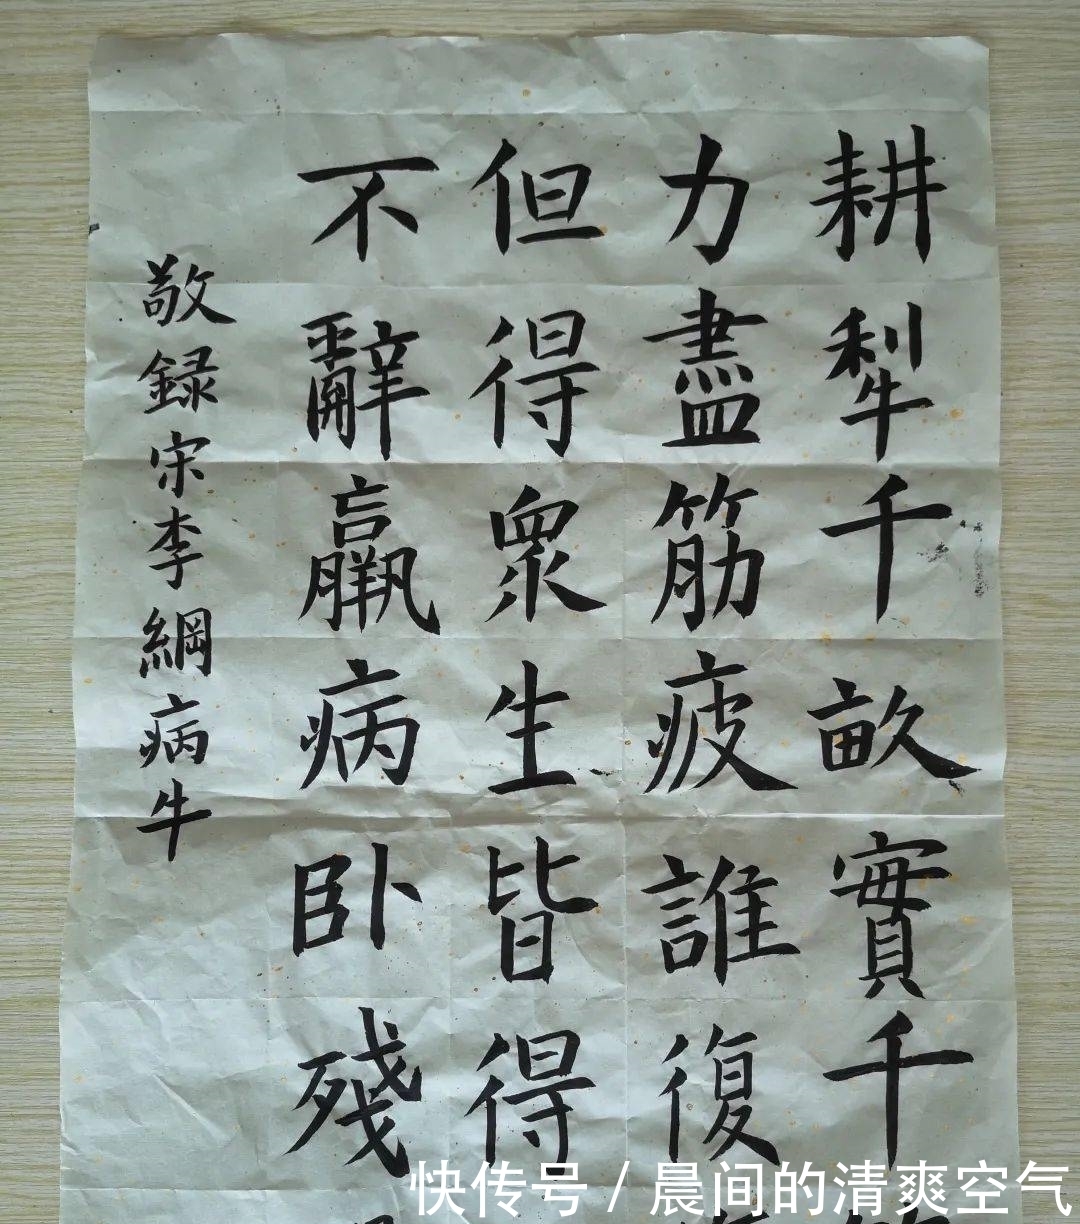 耕犁千畝實千
力盡筋疲誰復
但得眾生皆得
不辭羸病卧殘
敬録宋李綱病牛
快传号 / 晨间的清爽空气